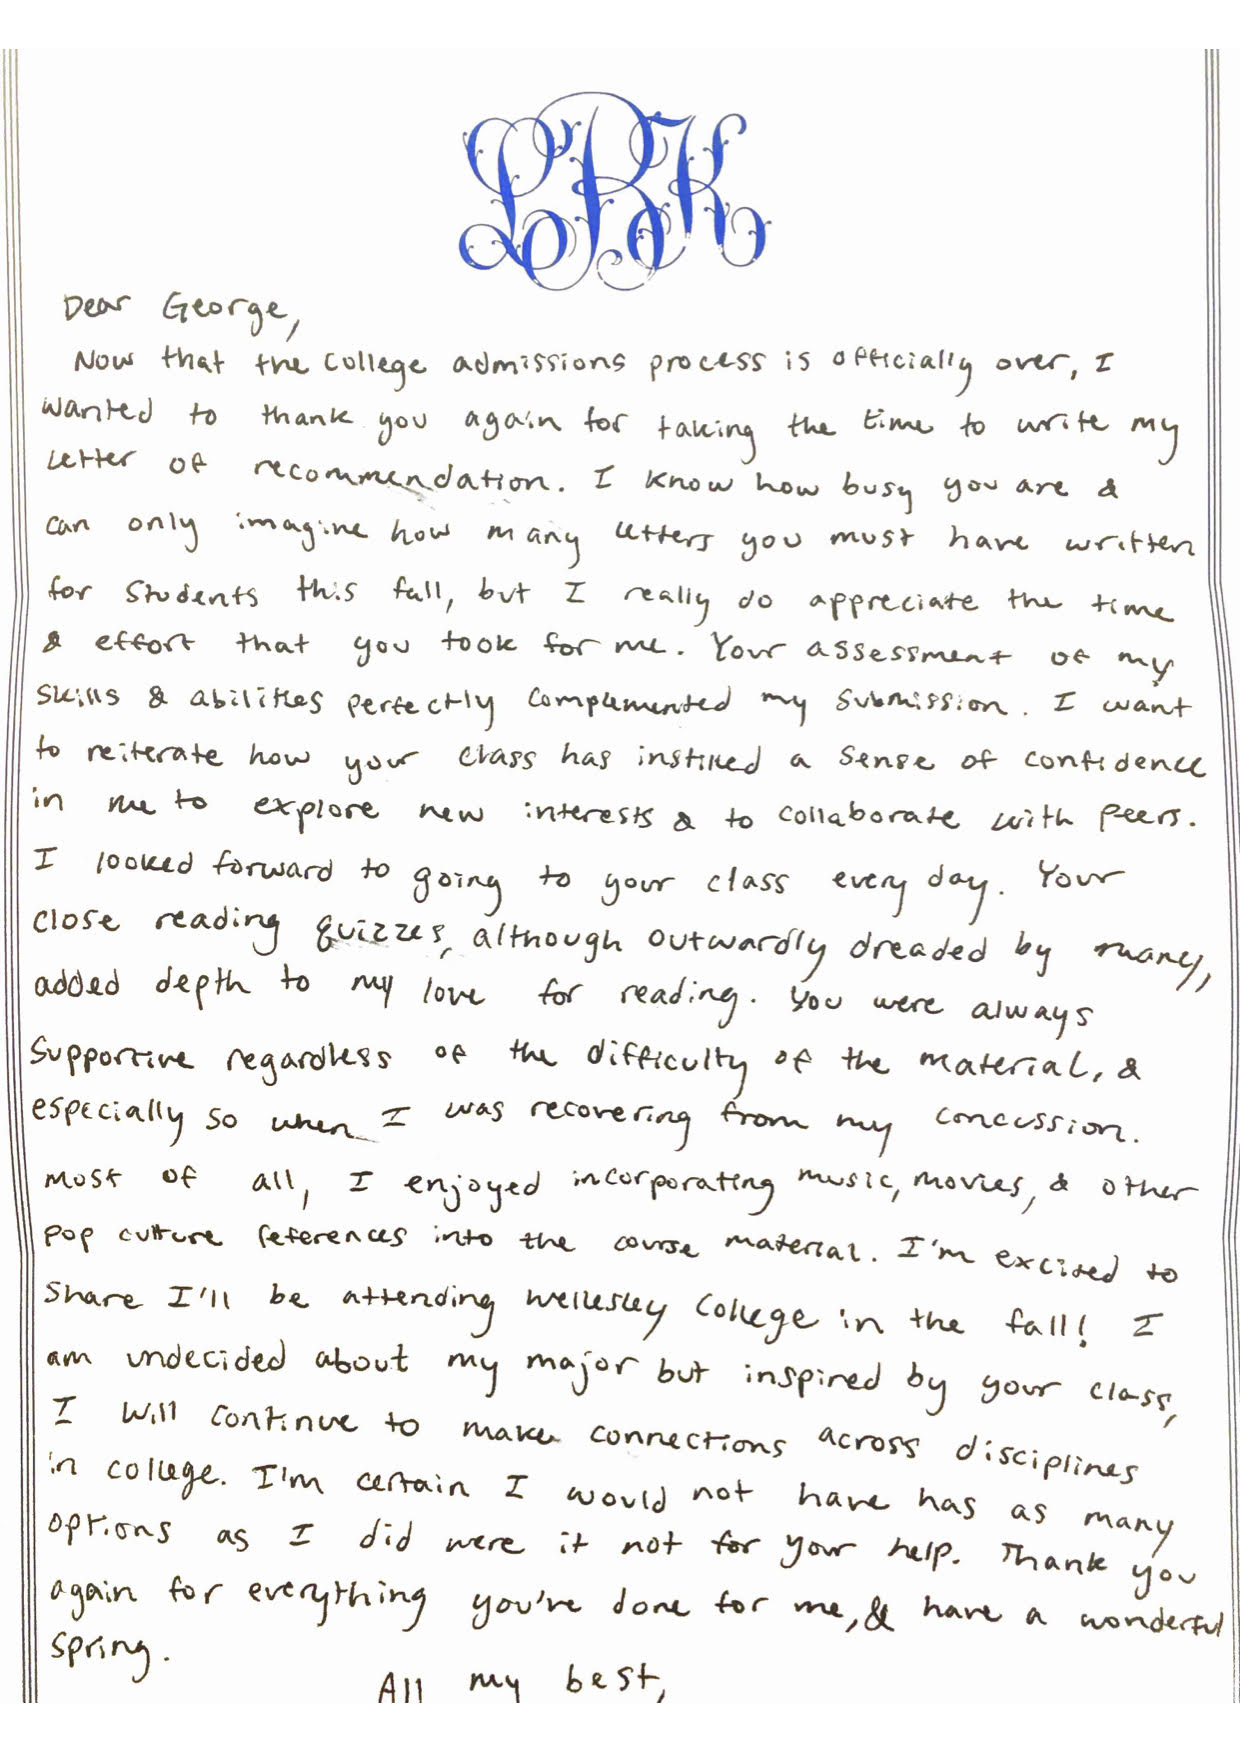 LRK
Dear George,
Now that the college admissions process is officially over, I
wanted to thank you again for taking the time to write my
letter of recommendation. I know how busy you are &
can only imagine how many letters you must have written
for students this fall, but I really do appreciate the time
& effort that you took for me. Your assessment of my
skills & abilities perfectly complemented my submission. I want
to reiterate how your class has instilled a sense of confidence
in me to explore new interests & to collaborate with peers.
I looked forward to going to your class every day. Your
close reading quizzes, although outwardly dreaded by many,
added depth to my love for reading. You were always
supportive regardless of the difficulty of the material, &
especially so when I was recovering from my concussion.
Most of all, I enjoyed incorporating music, movies, & other
pop culture references into the course material. I'm excited to
share I'll be attending Wellesley College in the fall! I
am undecided about my major but inspired by your class,
I will continue to make connections across disciplines
in college. I'm certain I would not have has as many
options as I did were it not for your help. Thank you
again for everything you've done for me, & have a wonderful
spring.
All my best,